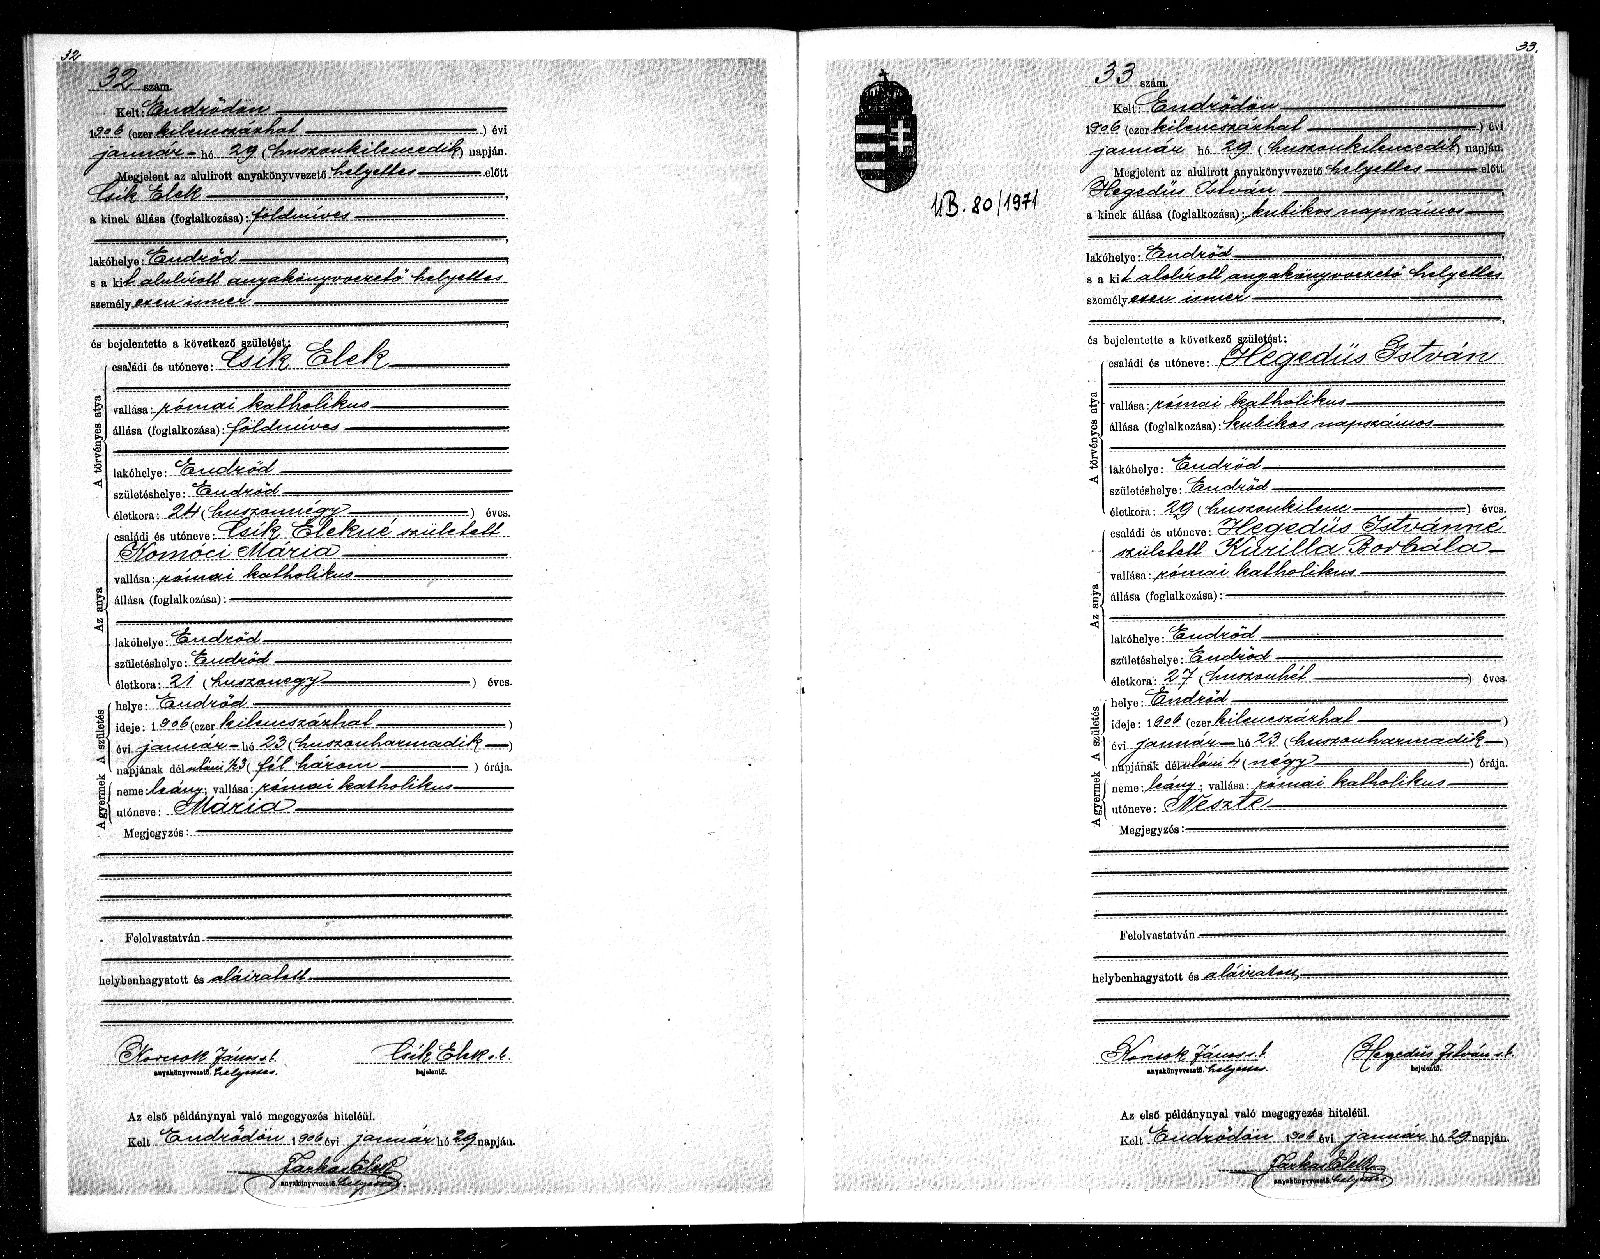 32
32 szám.
Kelt: Endrődön
1906 (ezer kilenczszázhat ) évi
január hó 29 (huszonkilencedik) napján.
Megjelent az alulirott anyakönyvvezető helyettes előtt
Csik Elek ,
a kinek állása (foglalkozása): földmíves
,
lakóhelye: Endrőd
s a kit alulírott anyakönyvvezető helyettes
személyesen ismer
,
és bejelentette a következő születést:
A törvényes atya
családi és utóneve: Csik Elek
vallása: római katholikus
állása (foglalkozása): földmíves
lakóhelye: Endrőd
születéshelye: Endrőd
életkora: 24 (huszonnégy ) éves.
Az anya
családi és utóneve: Csik Elekné született
Komóci Mária
vallása: római katholikus
állása (foglalkozása):
lakóhelye: Endrőd
születéshelye: Endrőd
életkora: 21 (huszonegy ) éves.
A születés
helye: Endrőd
ideje: 1906 (ezer kilenczszázhat )
évi január hó 23 (huszonharmadik )
napjának dél utáni 1/2 3 (fél három ) órája.
A gyermek
neme: leány; vallása: római katholikus
utóneve: Mária
Megjegyzés:
Felolvastatván
helybenhagyatott és aláiratott
Korcsok János s. k. Csik Elek s. k.
anyakönyvvezető helyettes. bejelentő.
Az első példánynyal való megegyezés hiteléül.
Kelt Endrődön 1906 évi január hó 29 napján.
Farkas Elek
anyakönyvvezető helyettes
33.
UB. 80/1971
33 szám.
Kelt: Endrődön
1906 (ezer kilenczszázhat ) évi
január hó 29 (huszonkilencedik) napján.
Megjelent az alulirott anyakönyvvezető helyettes előtt
Hegedüs István ,
a kinek állása (foglalkozása): kubikos napszámos
,
lakóhelye: Endrőd
s a kit alulírott anyakönyvvezető helyettes
személyesen ismer
,
és bejelentette a következő születést:
A törvényes atya
családi és utóneve: Hegedüs István
vallása: római katholikus
állása (foglalkozása): kubikos napszámos
lakóhelye: Endrőd
születéshelye: Endrőd
életkora: 29 (huszonkilenc ) éves.
Az anya
családi és utóneve: Hegedüs Istvánné
született Kurilla Borbála
vallása: római katholikus
állása (foglalkozása):
lakóhelye: Endrőd
születéshelye: Endrőd
életkora: 27 (huszonhét ) éves.
A születés
helye: Endrőd
ideje: 1906 (ezer kilenczszázhat )
évi január hó 23 (huszonharmadik )
napjának dél utáni 4 (négy ) órája.
A gyermek
neme: leány; vallása: római katholikus
utóneve: Neszte
Megjegyzés:
Felolvastatván
helybenhagyatott és aláiratott,
Korcsok János s. k. Hegedüs István s. k.
anyakönyvvezető helyettes. bejelentő.
Az első példánynyal való megegyezés hiteléül.
Kelt Endrődön 1906 évi január hó 29 napján.
Farkas Elek
anyakönyvvezető helyettes